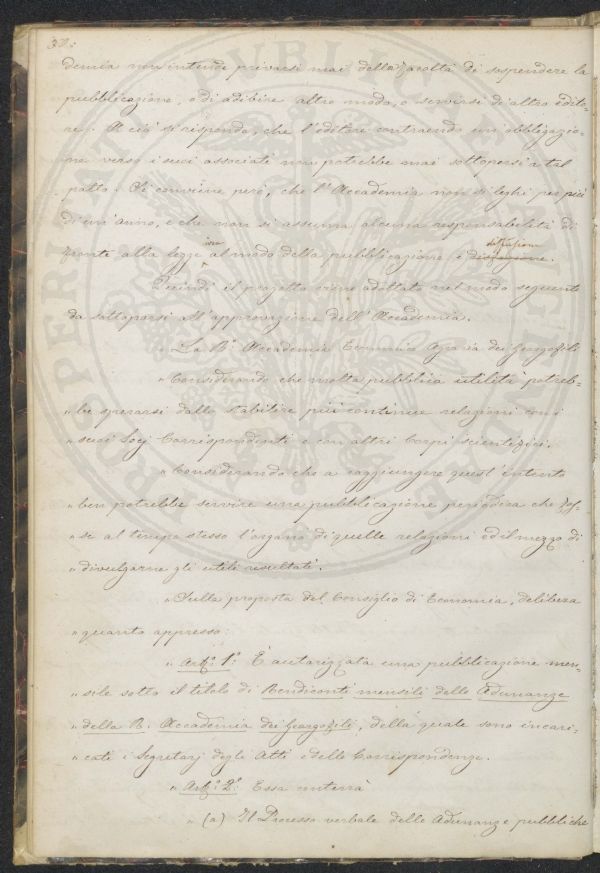 32.
demia non intende privarsi mai della facoltà di sospendere la
pubblicazione, o di adibire altro modo, o servirsi di altro edito-
re. A ciò si risponde, che l'editore contraendo un obbligazio-
ne verso i suoi associati non potrebbe mai sottoporsi a tal
patto. Si conviene però, che l'Accademia non si leghi per più
di un'anno, e che non si assuma alcuna responsabilità di
fronte alla legge ine al modo della pubblicazione, e
Quindi il progetto viene adottato nel modo seguente
da sottoporsi all'approvazione dell'Accademia.
" La R. Accademia Economico Agraria dei Georgofili
" Considerando che molta pubblica utilità potreb=
" be sperarsi dallo stabilire più continue relazioni con i
" suoi Socj Corrispondenti e con altri Corpi scientifici.
" Considerando che a raggiungere quest'intento
" ben potrebbe servire una pubblicazione periodica che fos-
" se al tempo stesso l'organo di quelle relazioni ed il mezzo di
" divulgarne gli utili resultati.
" Sulla proposta del Consiglio di Economia, delibera
" quanto appresso:
" Art.° 1.° È autorizzata una pubblicazione men-
" sile sotto il titolo di Rendiconti mensili delle Adunanze
" della R. Accademia dei Georgofili, della quale sono incari-
" cati i Segretarj degli Atti e delle Corrispondenze.
" Art.° 2.° Essa conterrà
" (a) Il Processo verbale delle Adunanze pubbliche
PROSPERITATI PVBLICAE AVGENDAE